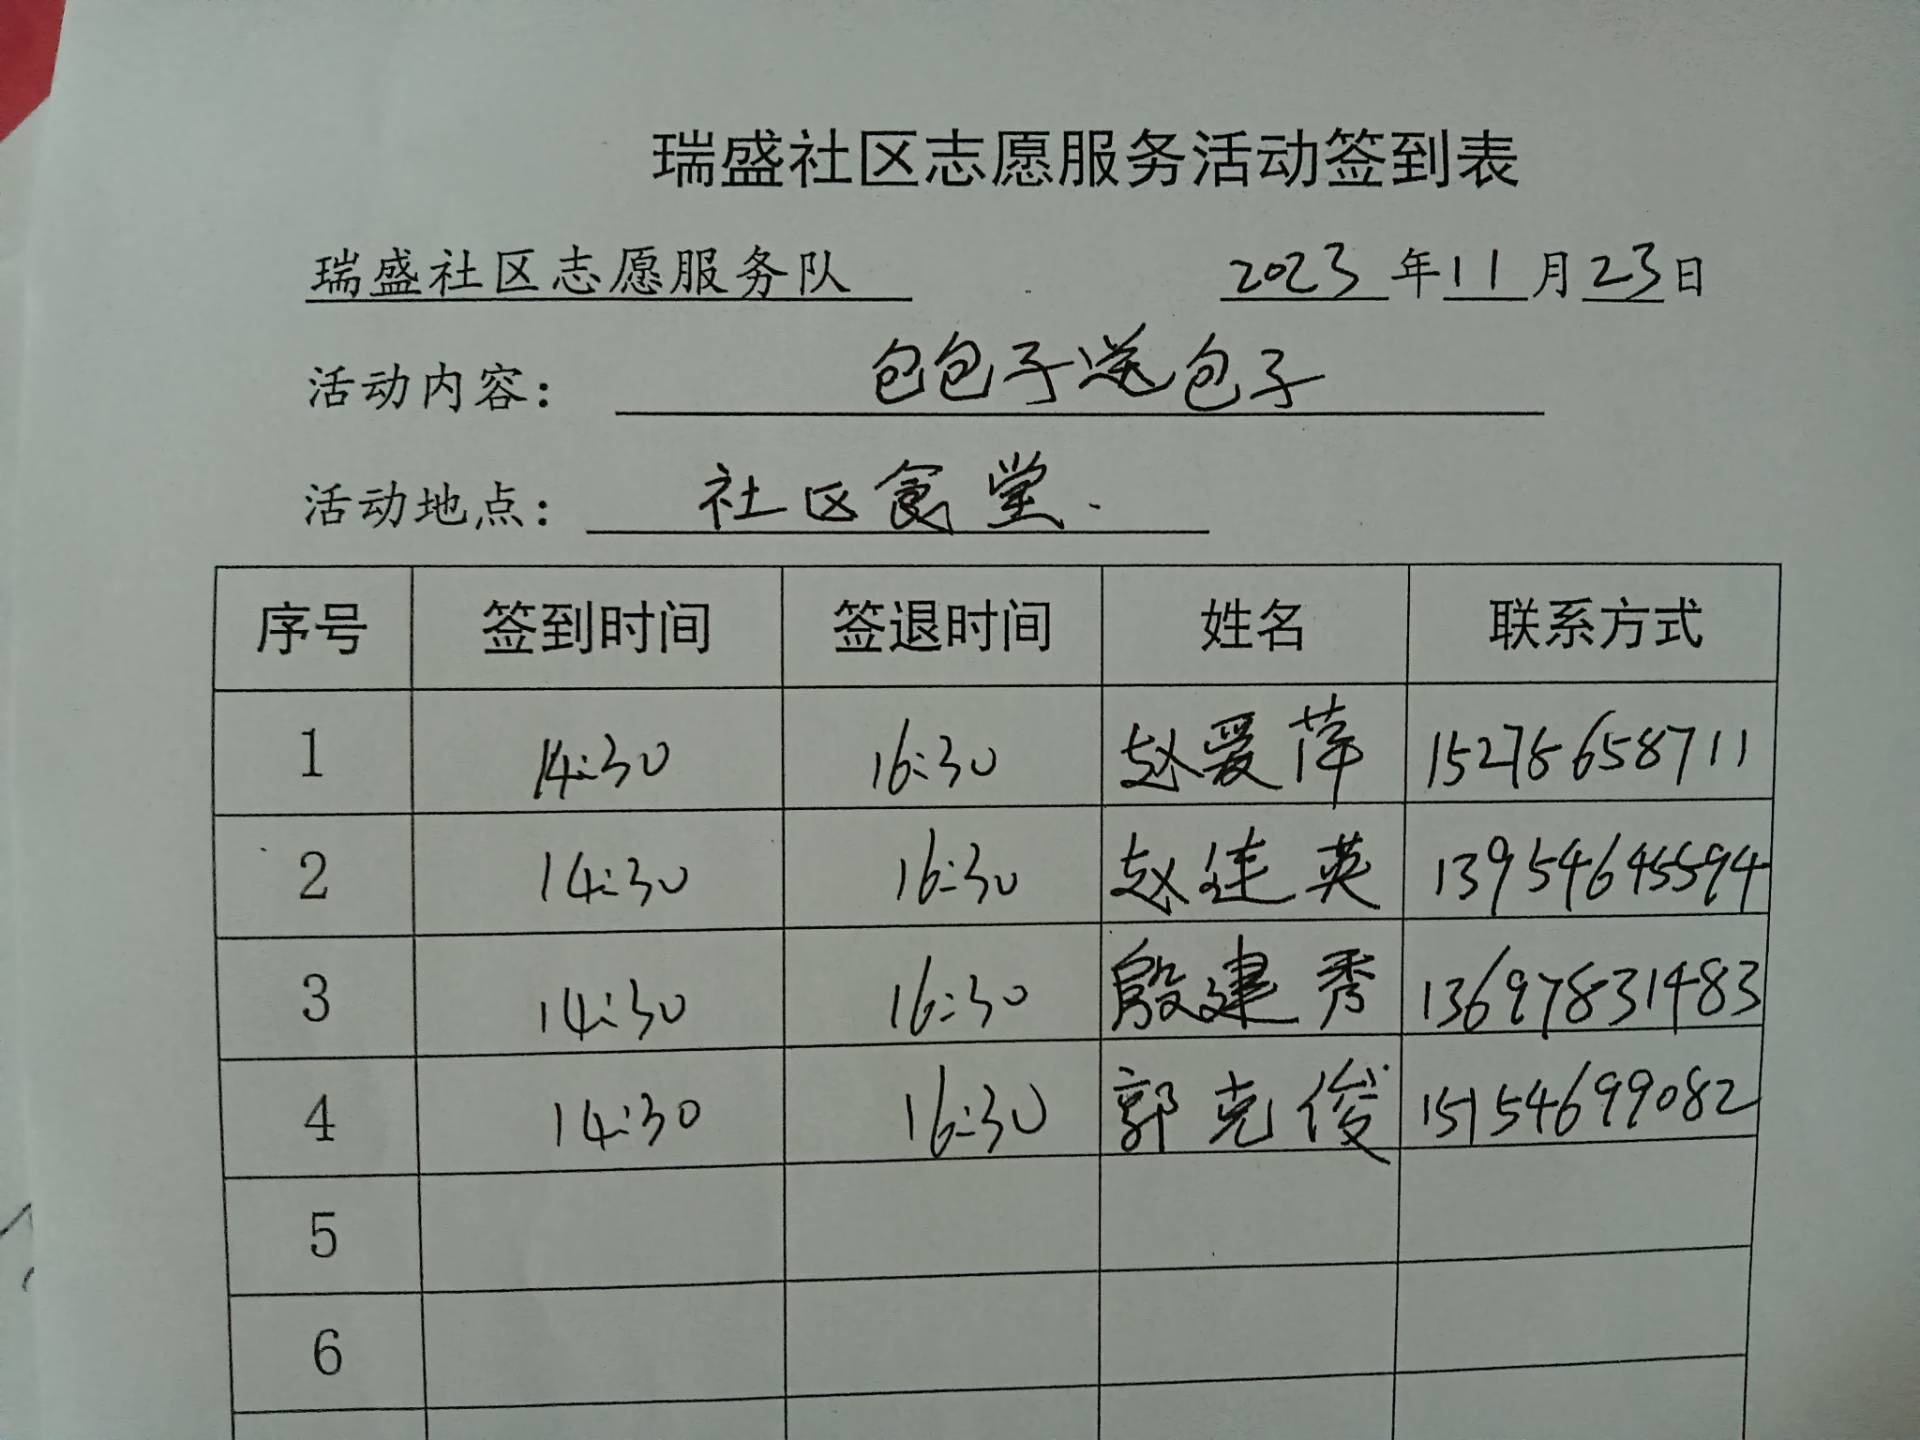 瑞盛社区志愿服务活动签到表
瑞盛社区志愿服务队 2023年11月23日
活动内容: 包包子送包子
活动地点: 社区食堂.
序号 签到时间 签退时间 姓名 联系方式
1 14:30 16:30 赵爱萍 15275658711
2 14:30 16:30 赵连英 13954645594
3 14:30 16:30 殷建秀 13697831483
4 14:30 16:30 郭克俊 15154699082
5
6